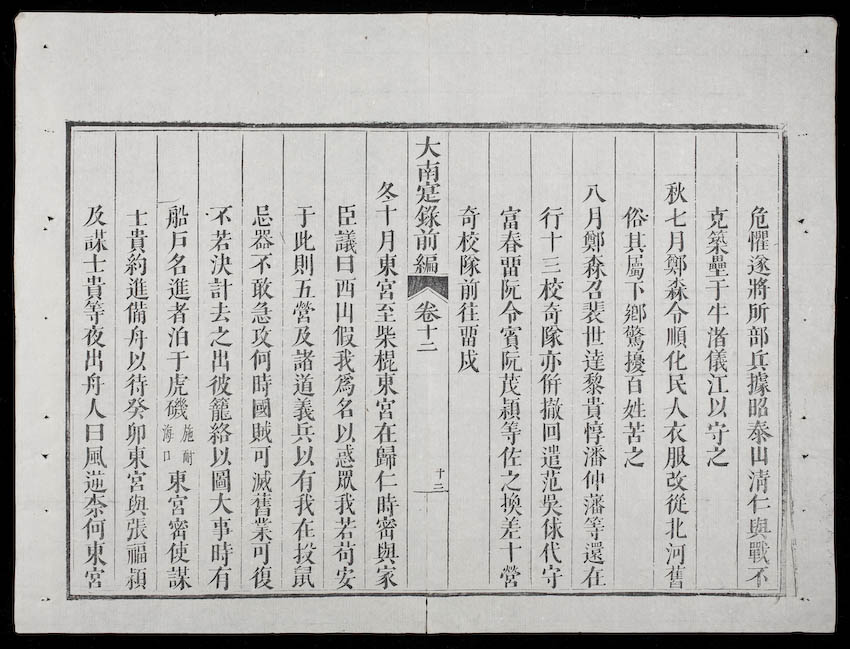 危懼遂將所部兵據昭泰山清仁與戰不
克築壘于牛渚儀江以守之
秋七月鄭森令順化民人衣服改從北河舊
俗其屬下鄉驚擾百姓苦之
八月鄭森召裴世達黎貴惇潘仲藩等還在
行十三校奇隊亦倂撤回遣范吳俅代守
富春畱阮令賓阮茂穎等佐之換差十營
奇校隊前往畱戍
大南寔錄前編 卷十二 十三
冬十月東宮至柴棍東宮在歸仁時密與家
臣議曰西山假我爲名以惑眾我若苟安
于此則五營及諸道義兵以有我在投鼠
忌器不敢急攻何時國賊可滅舊業可復
不若決計去之出彼籠絡以圖大事時有
船戶名進者泊于虎磯施耐海口東宮密使謀
士貴約進備舟以待癸卯東宮與張福穎
及謀士貴等夜出舟人曰風逆柰何東宮